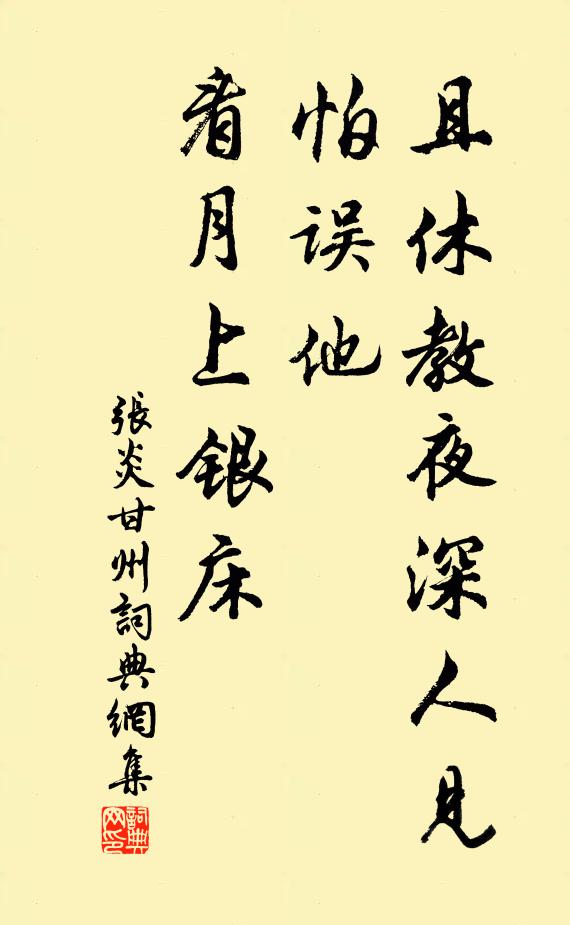 且休教夜深人见
怕误他
看月上银床
張炎甘州詞典網集
詞典网印